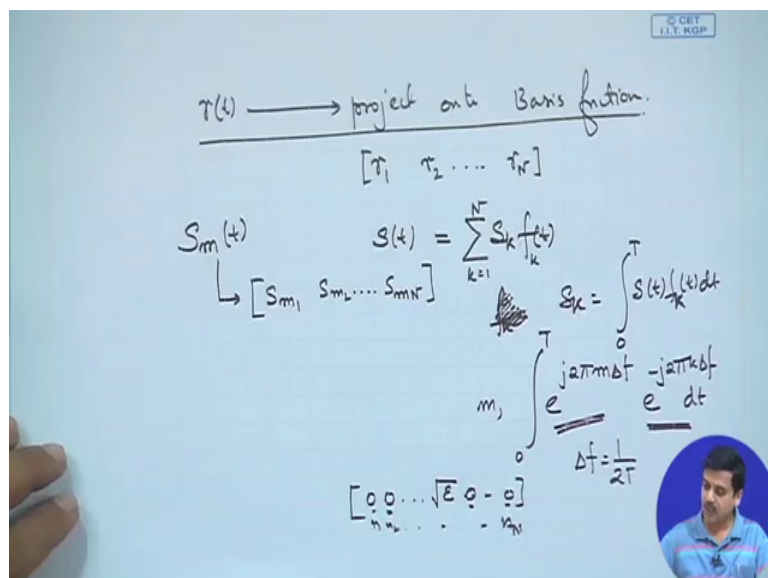 © CET
I.I.T. KGP
r(t) ⟶ project onto Basis fnction.
[r₁ r₂ .... r_N]
S_m(t) S(t) = ∑_{k=1}^{N} S_k f_k(t)
↳ [S_{m₁} S_{m₂} .... S_{mN}] S_k = ∫_0^T S(t) f_k(t) dt
m, ∫_0^T e^{j2πmΔf} e^{-j2πkΔf} dt
Δf = 1/2T
[0 0 ... √ε 0 - 0]
n n₂ . . . - n_N